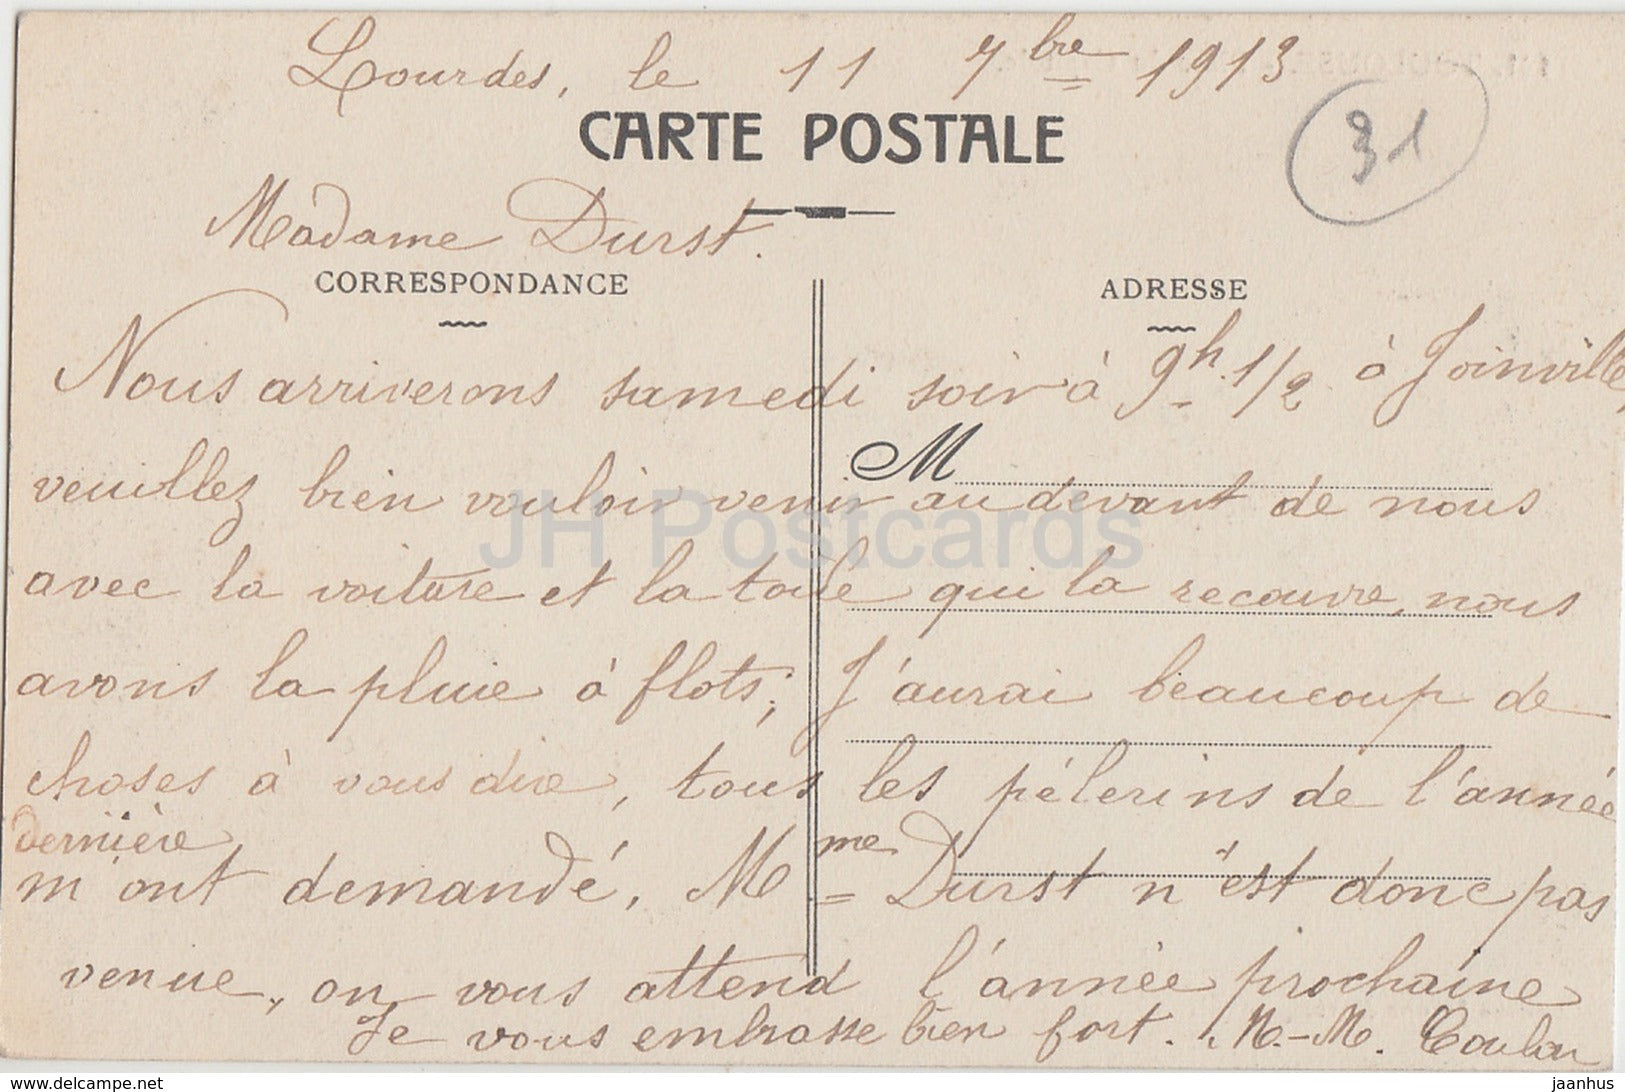 Lourdes, le 11 7bre 1913
CARTE POSTALE
31
Madame Durst.
CORRESPONDANCE
ADRESSE
Nous arriverons samedi soir à 9h. 1/2 à Joinville,
M
veuillez bien vouloir venir au devant de nous
JH Postcards
avec la voiture et la toile qui la recouvre, nous
avons la pluie à flots; J'aurai beaucoup de
choses à vous dire, tous les pélerins de l'année
dernière
m'ont demandé, Mme Durst n'est donc pas
venue, on vous attend l'année prochaine
Je vous embrasse bien fort. M.-M. Coulon
akpool.co.uk